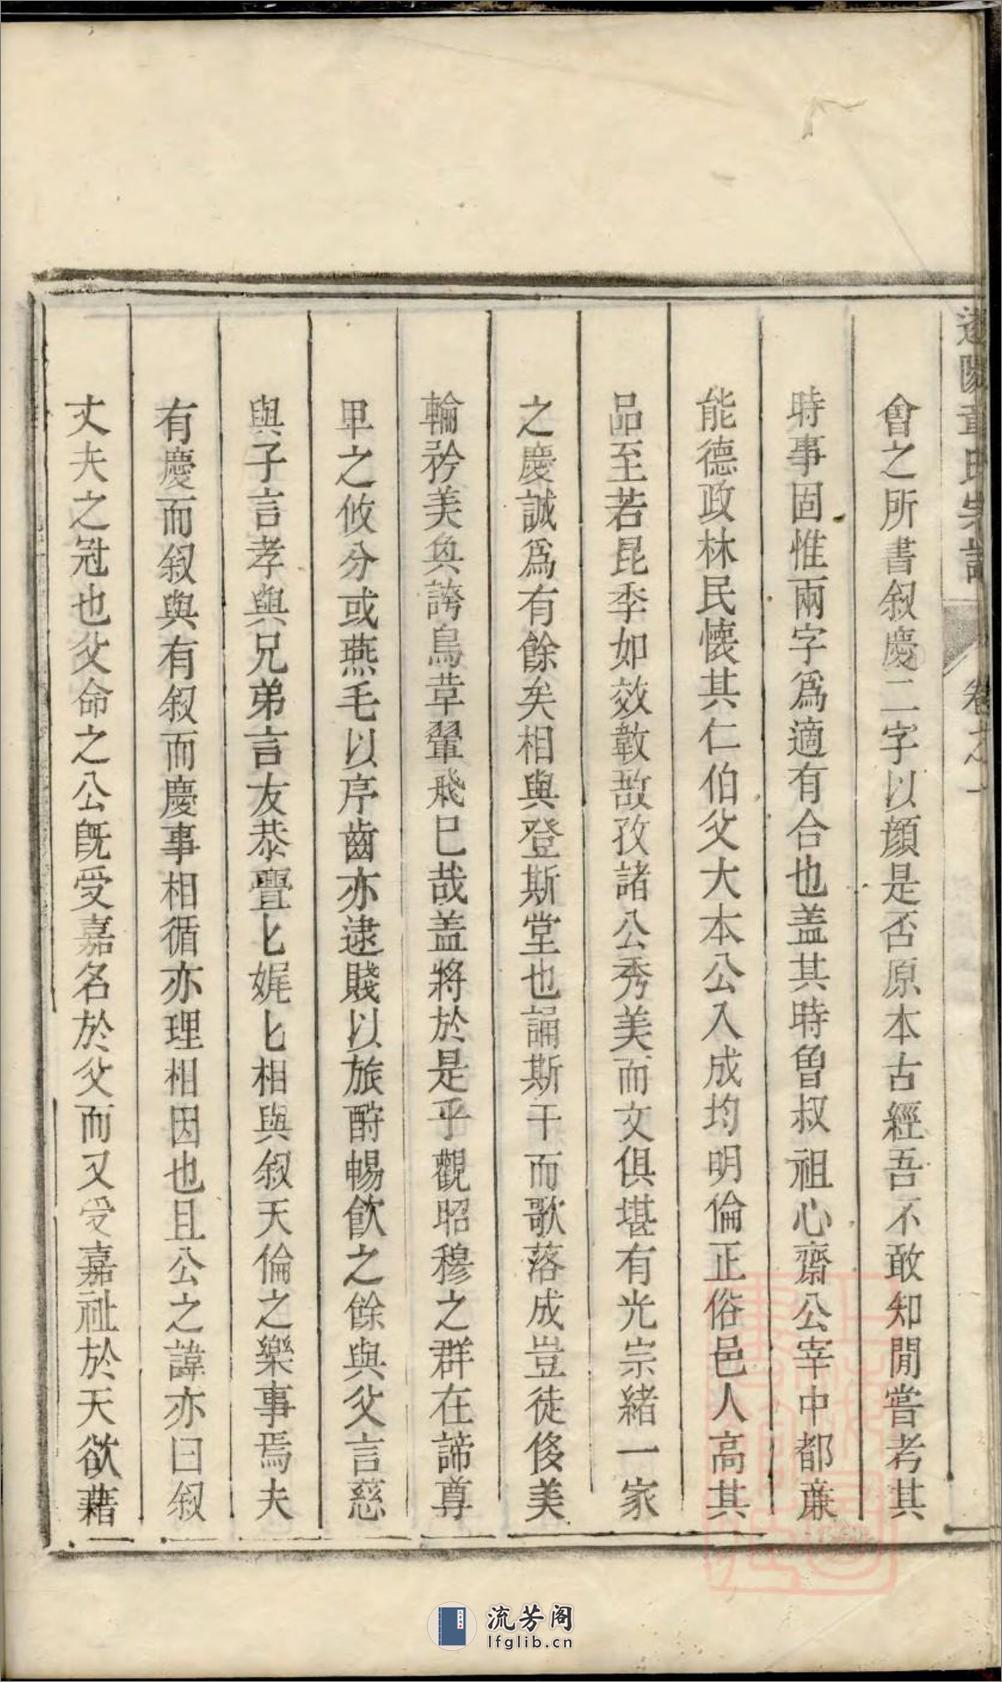 章氏宗譜
卷之一
會之所書叙慶二字以顔是否原本古經吾不敢知閒嘗考其
時事固惟兩字爲適有合也盖其時魯叔祖心齋公宰中都亷
能德政林民懷其仁伯父大本公入成均明倫正俗邑人高其
品至若昆季如效敦敔孜諸公秀美而文俱堪有光宗緒一家
之慶誠爲有餘矣相與登斯堂也誦斯干而歌落成豈徒侈美
輪矜美奐誇鳥革翬飛巳哉盖將於是乎觀昭穆之群在諦尊
卑之攸分或燕毛以序齒亦逮賤以旅酧暢飲之餘與父言慈
與子言孝與兄弟言友恭亹匕娓匕相與叙天倫之樂事焉夫
有慶而叙與有叙而慶事相循亦理相因也且公之諱亦曰叙
丈夫之冠也父命之公旣受嘉名於父而又受嘉祉於天欲藉
流芳阁
lfglib.cn